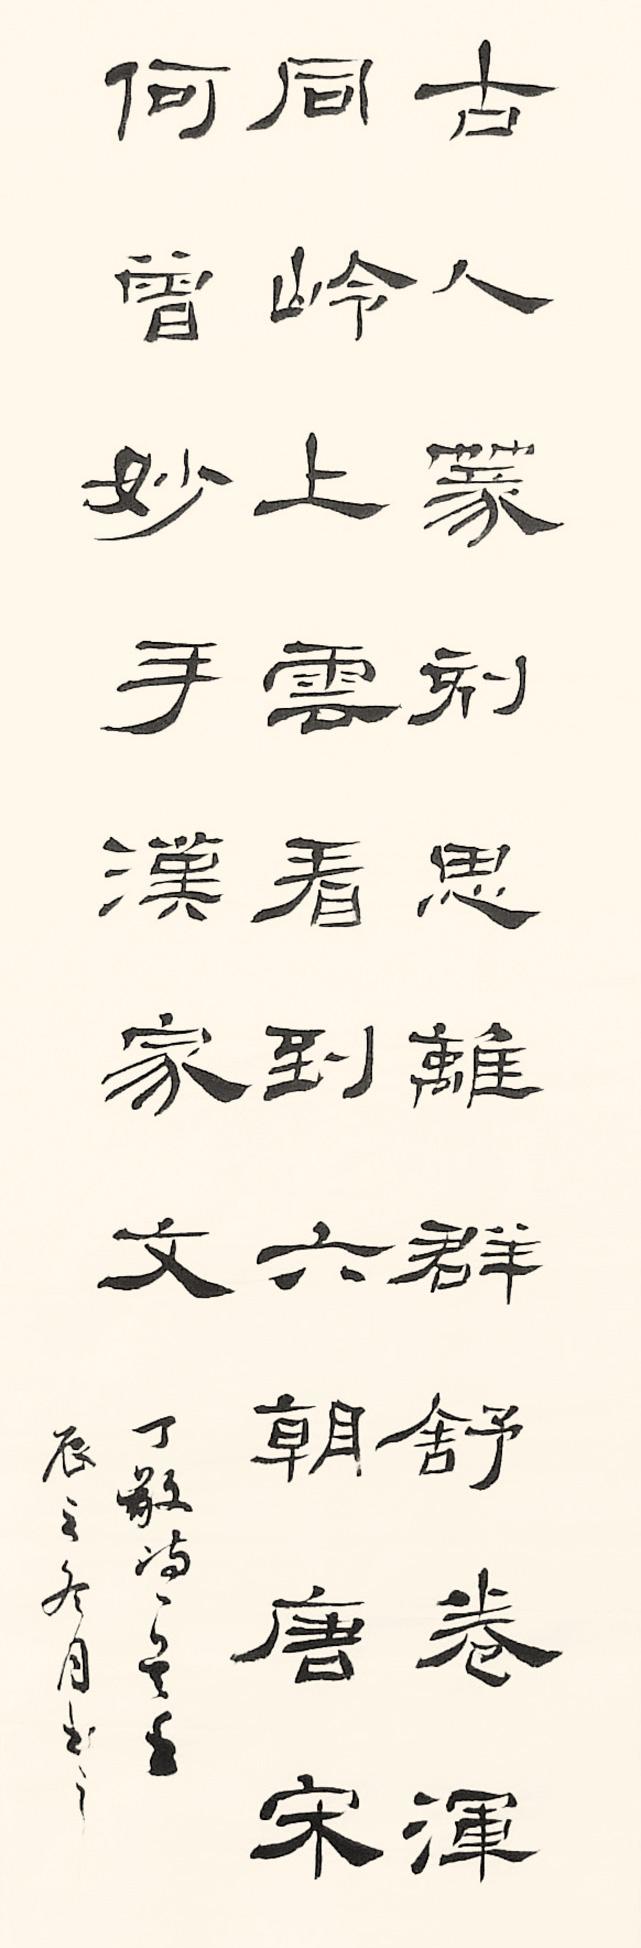 古人篆刻思離群舒卷渾
同岭上雲看到六朝唐宋
何曾妙手漢家文
丁敬詩一首 壬
辰之冬月书